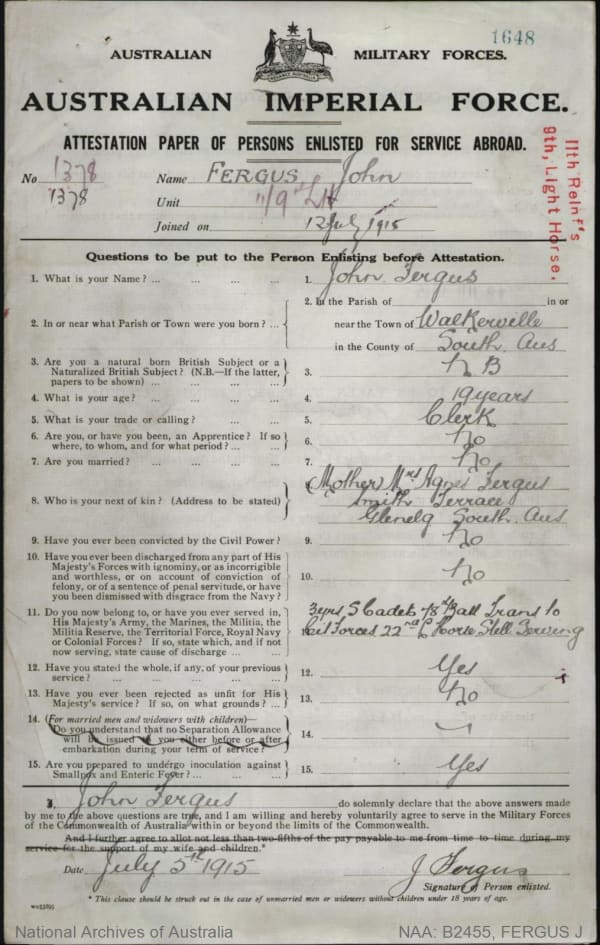 1648
AUSTRALIAN MILITARY FORCES.
AUSTRALIAN IMPERIAL FORCE.
ATTESTATION PAPER OF PERSONS ENLISTED FOR SERVICE ABROAD.
11th Reinf's
9th, Light Horse.
No 1378 Name FERGUS John
1378 Unit 11/9th LH
Joined on 12 July 1915
Questions to be put to the Person Enlisting before Attestation.
1. What is your Name? ... ... ... ... 1. John Fergus
2. In or near what Parish or Town were you born? ... 2. In the Parish of in or
near the Town of Walkerville
in the County of South. Aus
3. Are you a natural born British Subject or a
Naturalized British Subject? (N.B.—If the latter,
papers to be shown) ... ... ... ... 3. N B
4. What is your age? ... ... ... ... 4. 19 years
5. What is your trade or calling? ... ... 5. Clerk
6. Are you, or have you been, an Apprentice? If so
where, to whom, and for what period? ... ... 6. No
7. Are you married? ... ... ... ... 7. No
8. Who is your next of kin? (Address to be stated) Mother Mrs Agnes Fergus
Smith Terrace
Glenelg South. Aus
9. Have you ever been convicted by the Civil Power? 9. No
10. Have you ever been discharged from any part of His
Majesty's Forces with ignominy, or as incorrigible
and worthless, or on account of conviction of
felony, or of a sentence of penal servitude, or have
you been dismissed with disgrace from the Navy? 10. No
11. Do you now belong to, or have you ever served in,
His Majesty's Army, the Marines, the Militia, the
Militia Reserve, the Territorial Force, Royal Navy
or Colonial Forces? If so, state which, and if not
now serving, state cause of discharge ... ... 3yrs S Cadets 78th Batt Trans to
Cit Forces 22nd L Horse Still Serving
12. Have you stated the whole, if any, of your previous
service? ... ... ... ... ... 12. Yes
13. Have you ever been rejected as unfit for His
Majesty's service? If so, on what grounds? ... 13. No
14. (For married men and widowers with children)—
Do you understand that no Separation Allowance
will be issued to you either before or after
embarkation during your term of service? 14.
15. Are you prepared to undergo inoculation against
Smallpox and Enteric Fever? ... ... ... 15. Yes
I, John Fergus do solemnly declare that the above answers made
by me to the above questions are true, and I am willing and hereby voluntarily agree to serve in the Military Forces
of the Commonwealth of Australia within or beyond the limits of the Commonwealth.
And I further agree to allot not less than two-fifths of the pay payable to me from time to time during my
service for the support of my wife and children.*
Date July 5th 1915 J Fergus
Signature of Person enlisted.
* This clause should be struck out in the case of unmarried men or widowers without children under 18 years of age.
National Archives of Australia NAA: B2455, FERGUS J